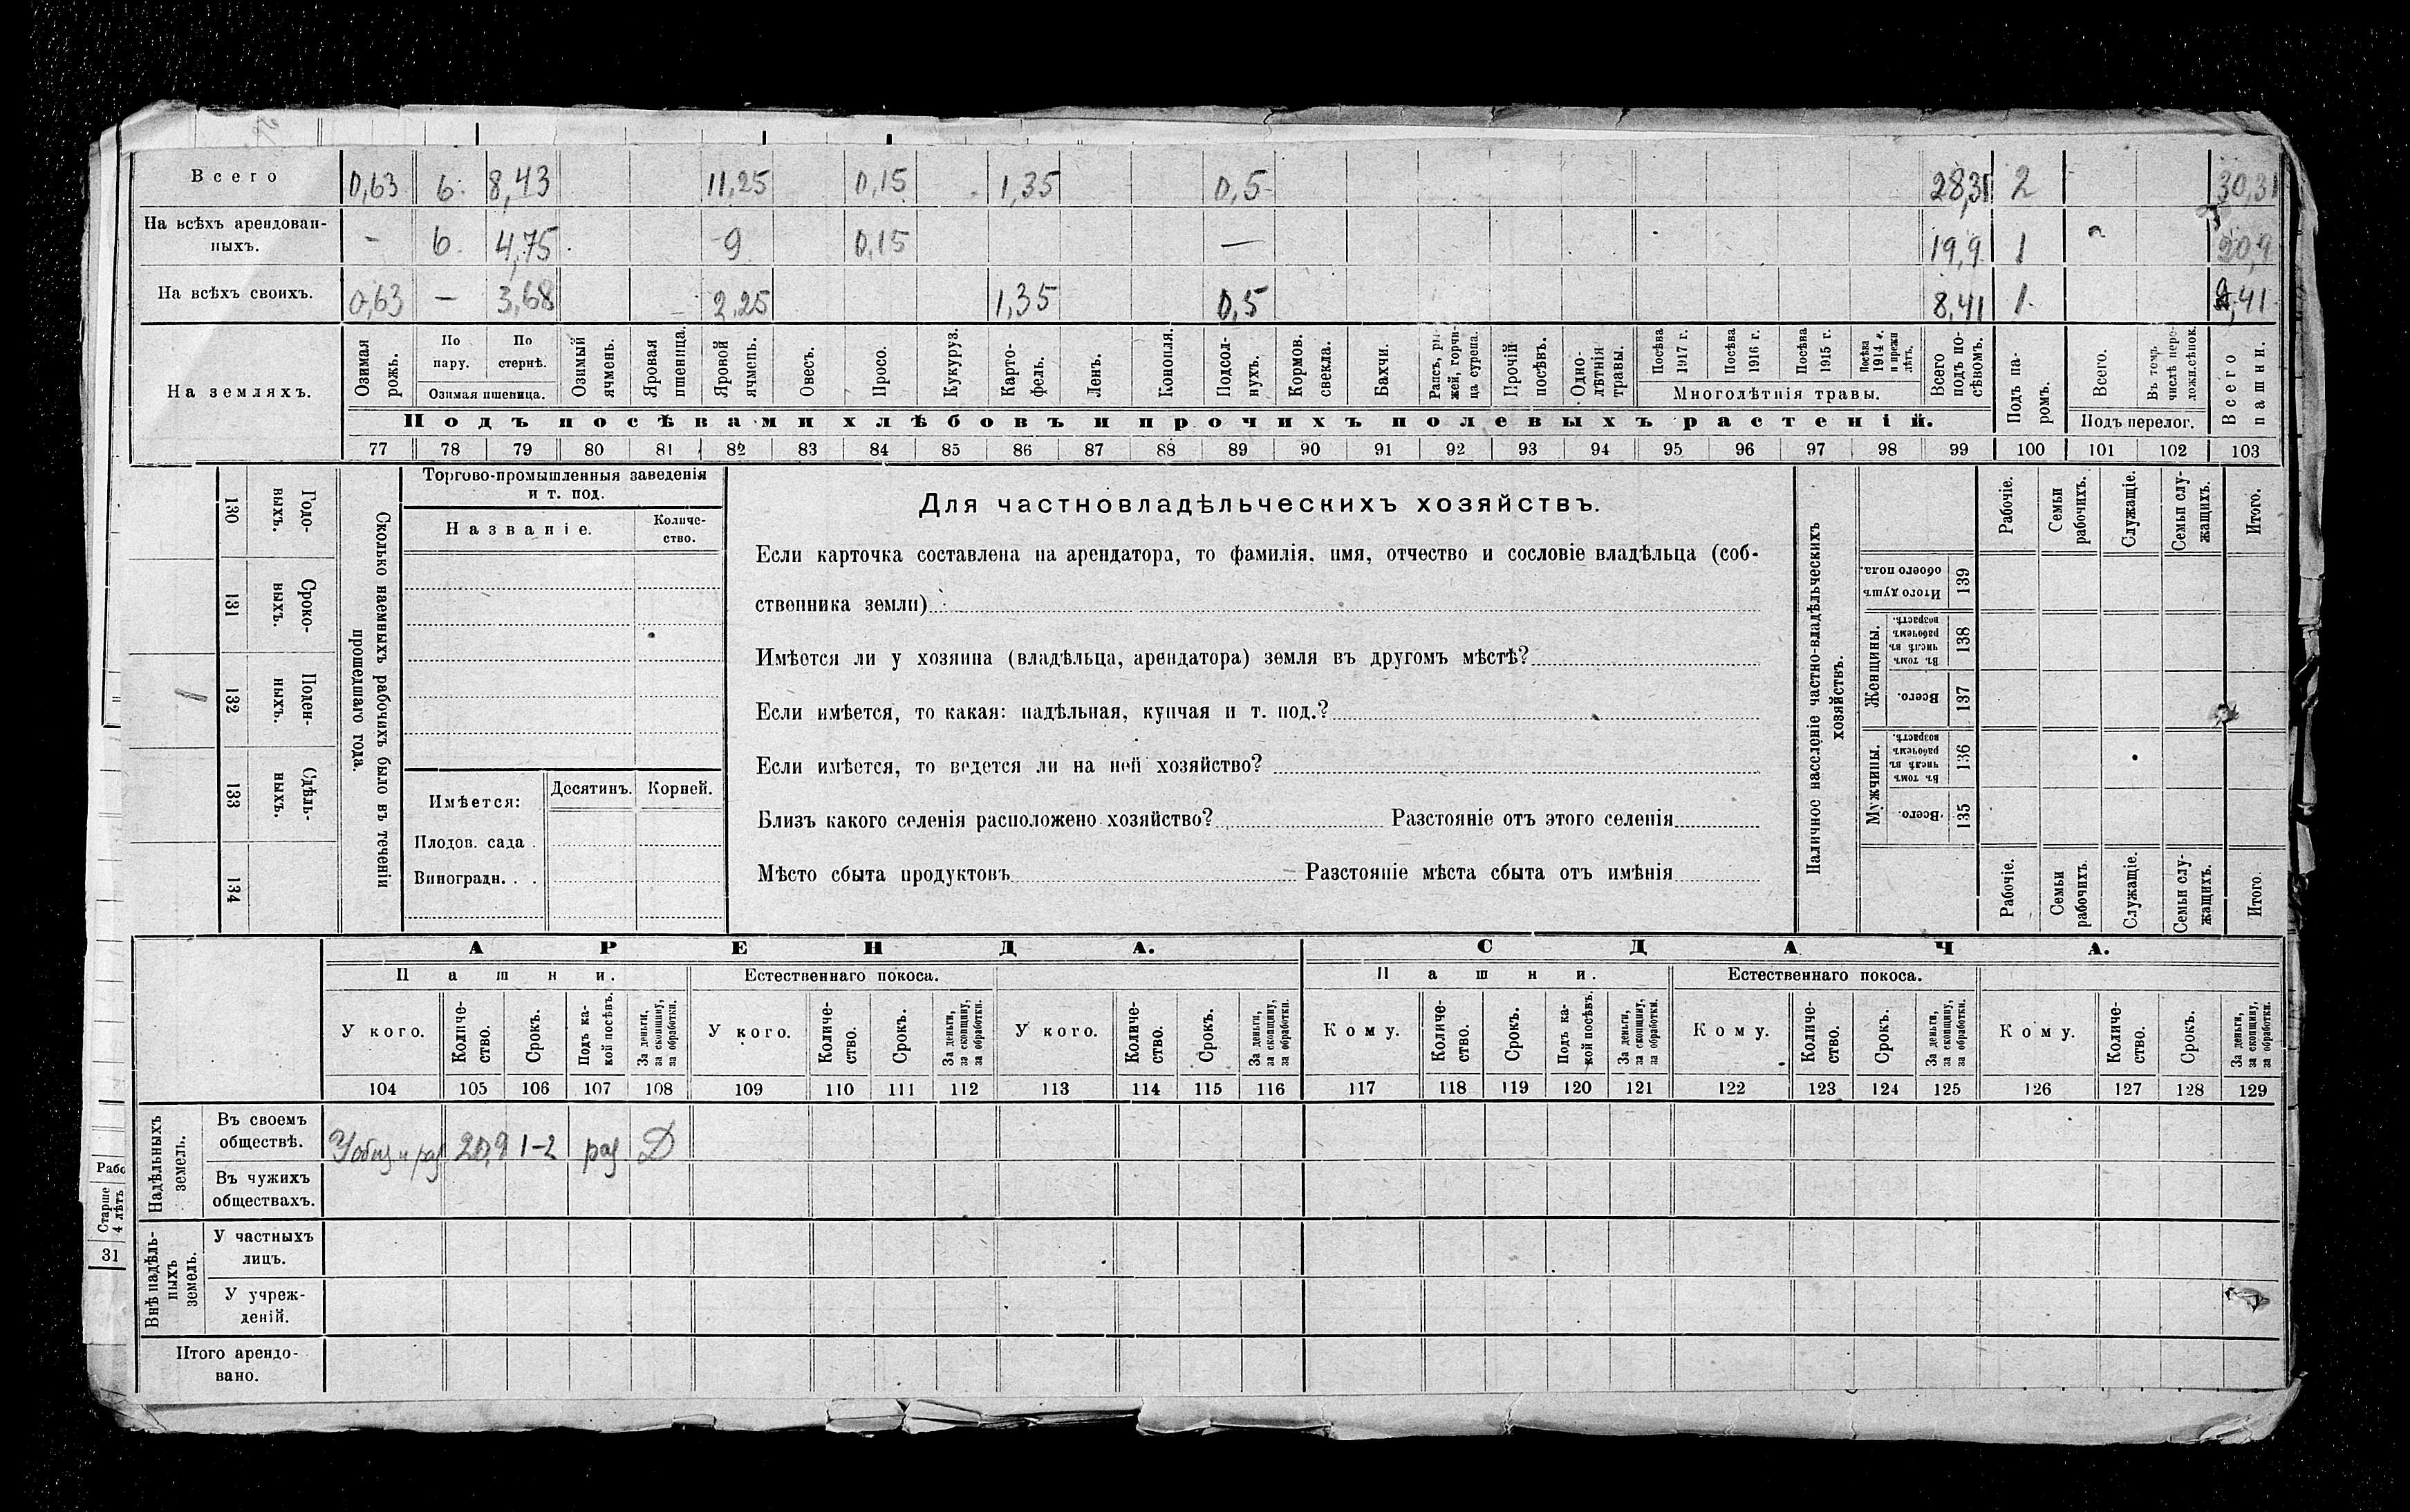 Всего 0,63 6 8,43 11,25 0,15 1,35 0,5 28,31 2 30,31
На всѣхъ арендован-
ныхъ. – 6 4,75 9 0,15 — 19,9 1 20,9
На всѣхъ своихъ. 0,63 – 3,68 2,25 1,35 0,5 8,41 1 9,41
На земляхъ.
Озимая рожь.
По пару.
По стернѣ.
Озимая пшеница.
Озимый ячмень.
Яровая пшеница.
Яровой ячмень.
Овесъ.
Просо.
Кукуруз.
Карто-
фель.
Ленъ.
Конопля.
Подсол-
нухъ.
Кормов. свекла.
Бахчи.
Рапсъ, ры-
жей, горчи-
ца сурепа.
Прочій посѣвъ.
Одно-
лѣтнія травы.
Посѣва 1917 г.
Посѣва 1916 г.
Посѣва 1915 г.
Посѣва 1914 г. и прежн лѣтъ.
Многолѣтнія травы.
Всего подъ по-
сѣвомъ.
Подъ па-
ромъ.
Всего.
Въ томъ числѣ пере-
ложн.сѣнок.
Подъ перелог.
Всего пашни.
Подъ посѣвами хлѣбовъ и прочихъ полевыхъ растеній.
77 78 79 80 81 82 83 84 85 86 87 88 89 90 91 92 93 94 95 96 97 98 99 100 101 102 103
130 Годо-
выхъ.
131 Сроко-
выхъ.
132 Поден-
ныхъ.
133 Сдѣль-
ныхъ.
134
Сколько наемныхъ рабочихъ было въ теченіи
прошедшаго года.
Торгово-промышленныя заведенія
и т. под.
Названіе.
Количе-
ство.
Имѣется:
Десятинъ.
Корней.
Плодов. сада .
Виноградн. . .
Для частновладѣльческихъ хозяйствъ.
Если карточка составлена на арендатора, то фамилія, имя, отчество и сословіе владѣльца (соб-
ственника земли)
Имѣется ли у хозяина (владѣльца, арендатора) земля въ другомъ мѣстѣ?
Если имѣется, то какая: надѣльная, купчая и т. под.?
Если имѣется, то ведется ли на ней хозяйство?
Близъ какого селенія расположено хозяйство? Разстояніе отъ этого селенія
Мѣсто сбыта продуктовъ Разстояніе мѣста сбыта отъ имѣнія
Наличное населеніе частно-владѣльческихъ
хозяйствъ.
Рабочіе.
Семьи рабочихъ.
Служащіе.
Семьи слу-
жащихъ.
Итого.
Итого душъ обоего пола. 139
Женщины.
Въ томъ числѣ въ рабочемъ возрастѣ. 138
Всего. 137
Мужчины.
Въ томъ числѣ въ рабочемъ возрастѣ. 136
Всего. 135
Рабочіе.
Семьи рабочихъ.
Служащіе.
Семьи слу-
жащихъ.
Итого.
АРЕНДА. СДАЧА.
Пашни. Естественнаго покоса. Пашни. Естественнаго покоса.
У кого.
Количе-
ство.
Срокъ.
Подъ ка-
кой посѣвъ.
За деньги, за скопщину, за обработки.
У кого.
Количе-
ство.
Срокъ.
За деньги, за скопщину, за обработки.
У кого.
Количе-
ство.
Срокъ.
За деньги, за скопщину, за обработки.
Кому.
Количе-
ство.
Срокъ.
Подъ ка-
кой посѣвъ.
За деньги, за скопщину, за обработки.
Кому.
Количе-
ство.
Срокъ.
За деньги, за скопщину, за обработки.
Кому.
Количе-
ство.
Срокъ.
За деньги, за скопщину, за обработки.
104 105 106 107 108 109 110 111 112 113 114 115 116 117 118 119 120 121 122 123 124 125 126 127 128 129
Надѣльныхъ земель.
Въ своемъ
обществѣ. 20,9 1-2 раз Д
Въ чужихъ
обществахъ.
Внѣ надѣль-
ныхъ земель.
У частныхъ
лицъ.
У учреж-
деній.
Итого арендо-
вано.
Рабо
Старше
4 лѣтъ
31